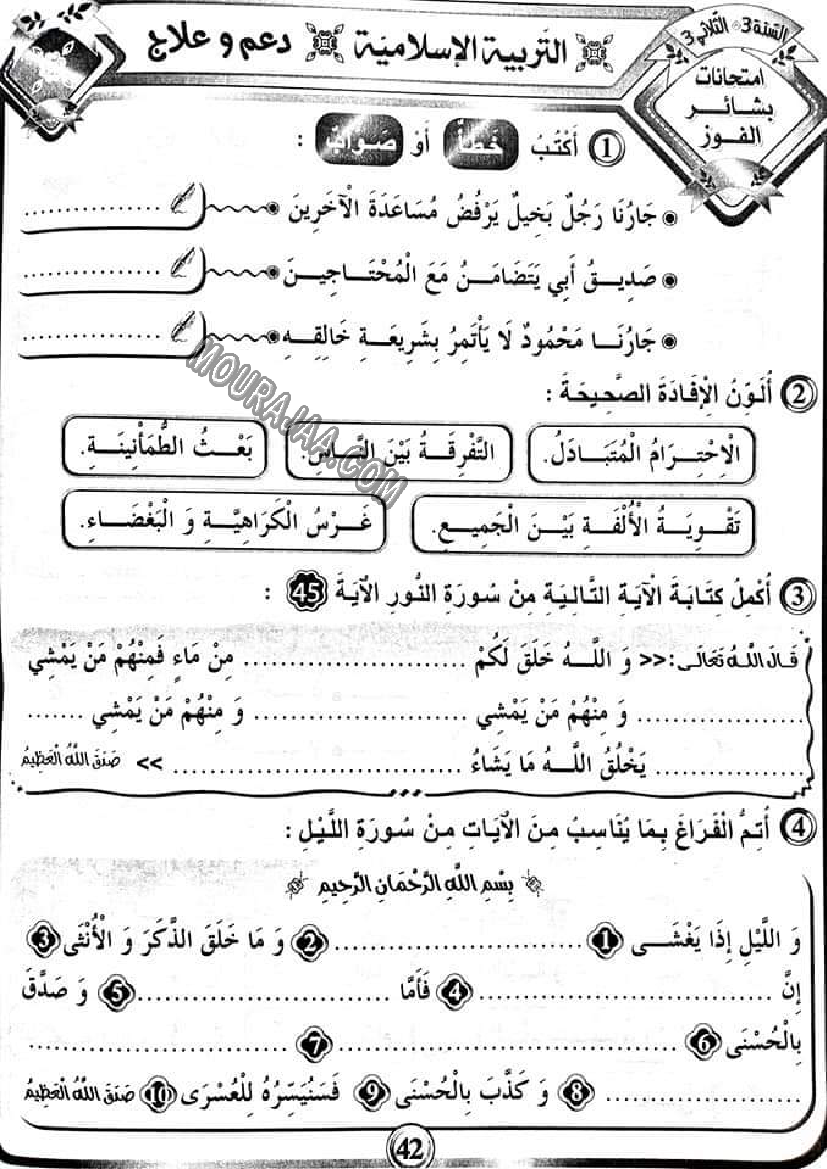 السّنة 3 - الثّلاثي 3
امتحانات
بشائر
الفوز
التّربية الإسلاميّة دعم و علاج
1 أَكْتُبُ خَطَأٌ أَوْ صَوَابٌ :
جَارُنَا رَجُلٌ بَخِيلٌ يَرْفُضُ مُسَاعَدَةَ الْآخَرِينَ ................
صَدِيقُ أَبِي يَتَضَامَنُ مَعَ الْمُحْتَاجِينَ ................
جَارُنَا مَحْمُودٌ لَا يَأْتَمِرُ بِشَرِيعَةِ خَالِقِهِ ................
MOURAJAA.COM
2 أُلَوِّنُ الْإِفَادَةَ الصَّحِيحَةَ :
الْاِحْتِرَامُ الْمُتَبَادَلُ. التَّفْرِقَةُ بَيْنَ النَّاسِ. بَعْثُ الطُّمَأْنِينَةِ.
تَقْوِيَةُ الْأُلْفَةِ بَيْنَ الْجَمِيعِ. غَرْسُ الْكَرَاهِيَّةِ وَ الْبَغْضَاءِ.
3 أُكْمِلُ كِتَابَةَ الْآيَةِ التَّالِيَةِ مِنْ سُورَةِ النُّورِ الْآيَةَ 45 :
قَالَ اللَّهُ تَعَالَى :<< وَ اللَّهُ خَلَقَ لَكُمْ ........................ مِنْ مَاءٍ فَمِنْهُمْ مَنْ يَمْشِي
.................. وَ مِنْهُمْ مَنْ يَمْشِي ........................ وَ مِنْهُمْ مَنْ يَمْشِي .......
................ يَخْلُقُ اللَّهُ مَا يَشَاءُ ................................ >> صَدَقَ اللَّهُ الْعَظِيمُ
4 أُتِمُّ الْفَرَاغَ بِمَا يُنَاسِبُ مِنَ الْآيَاتِ مِنْ سُورَةِ اللَّيْلِ :
بِسْمِ اللَّهِ الرَّحْمَانِ الرَّحِيمِ
وَ اللَّيْلِ إِذَا يَغْشَى 1 ............................ 2 وَ مَا خَلَقَ الذَّكَرَ وَ الْأُنْثَى 3
إِنَّ ................................ 4 فَأَمَّا ............................ 5 وَ صَدَّقَ
بِالْحُسْنَى 6 ............................ 7 ............................
.................... 8 وَ كَذَّبَ بِالْحُسْنَى 9 فَسَنُيَسِّرُهُ لِلْعُسْرَى 10 صَدَقَ اللَّهُ الْعَظِيمُ
42